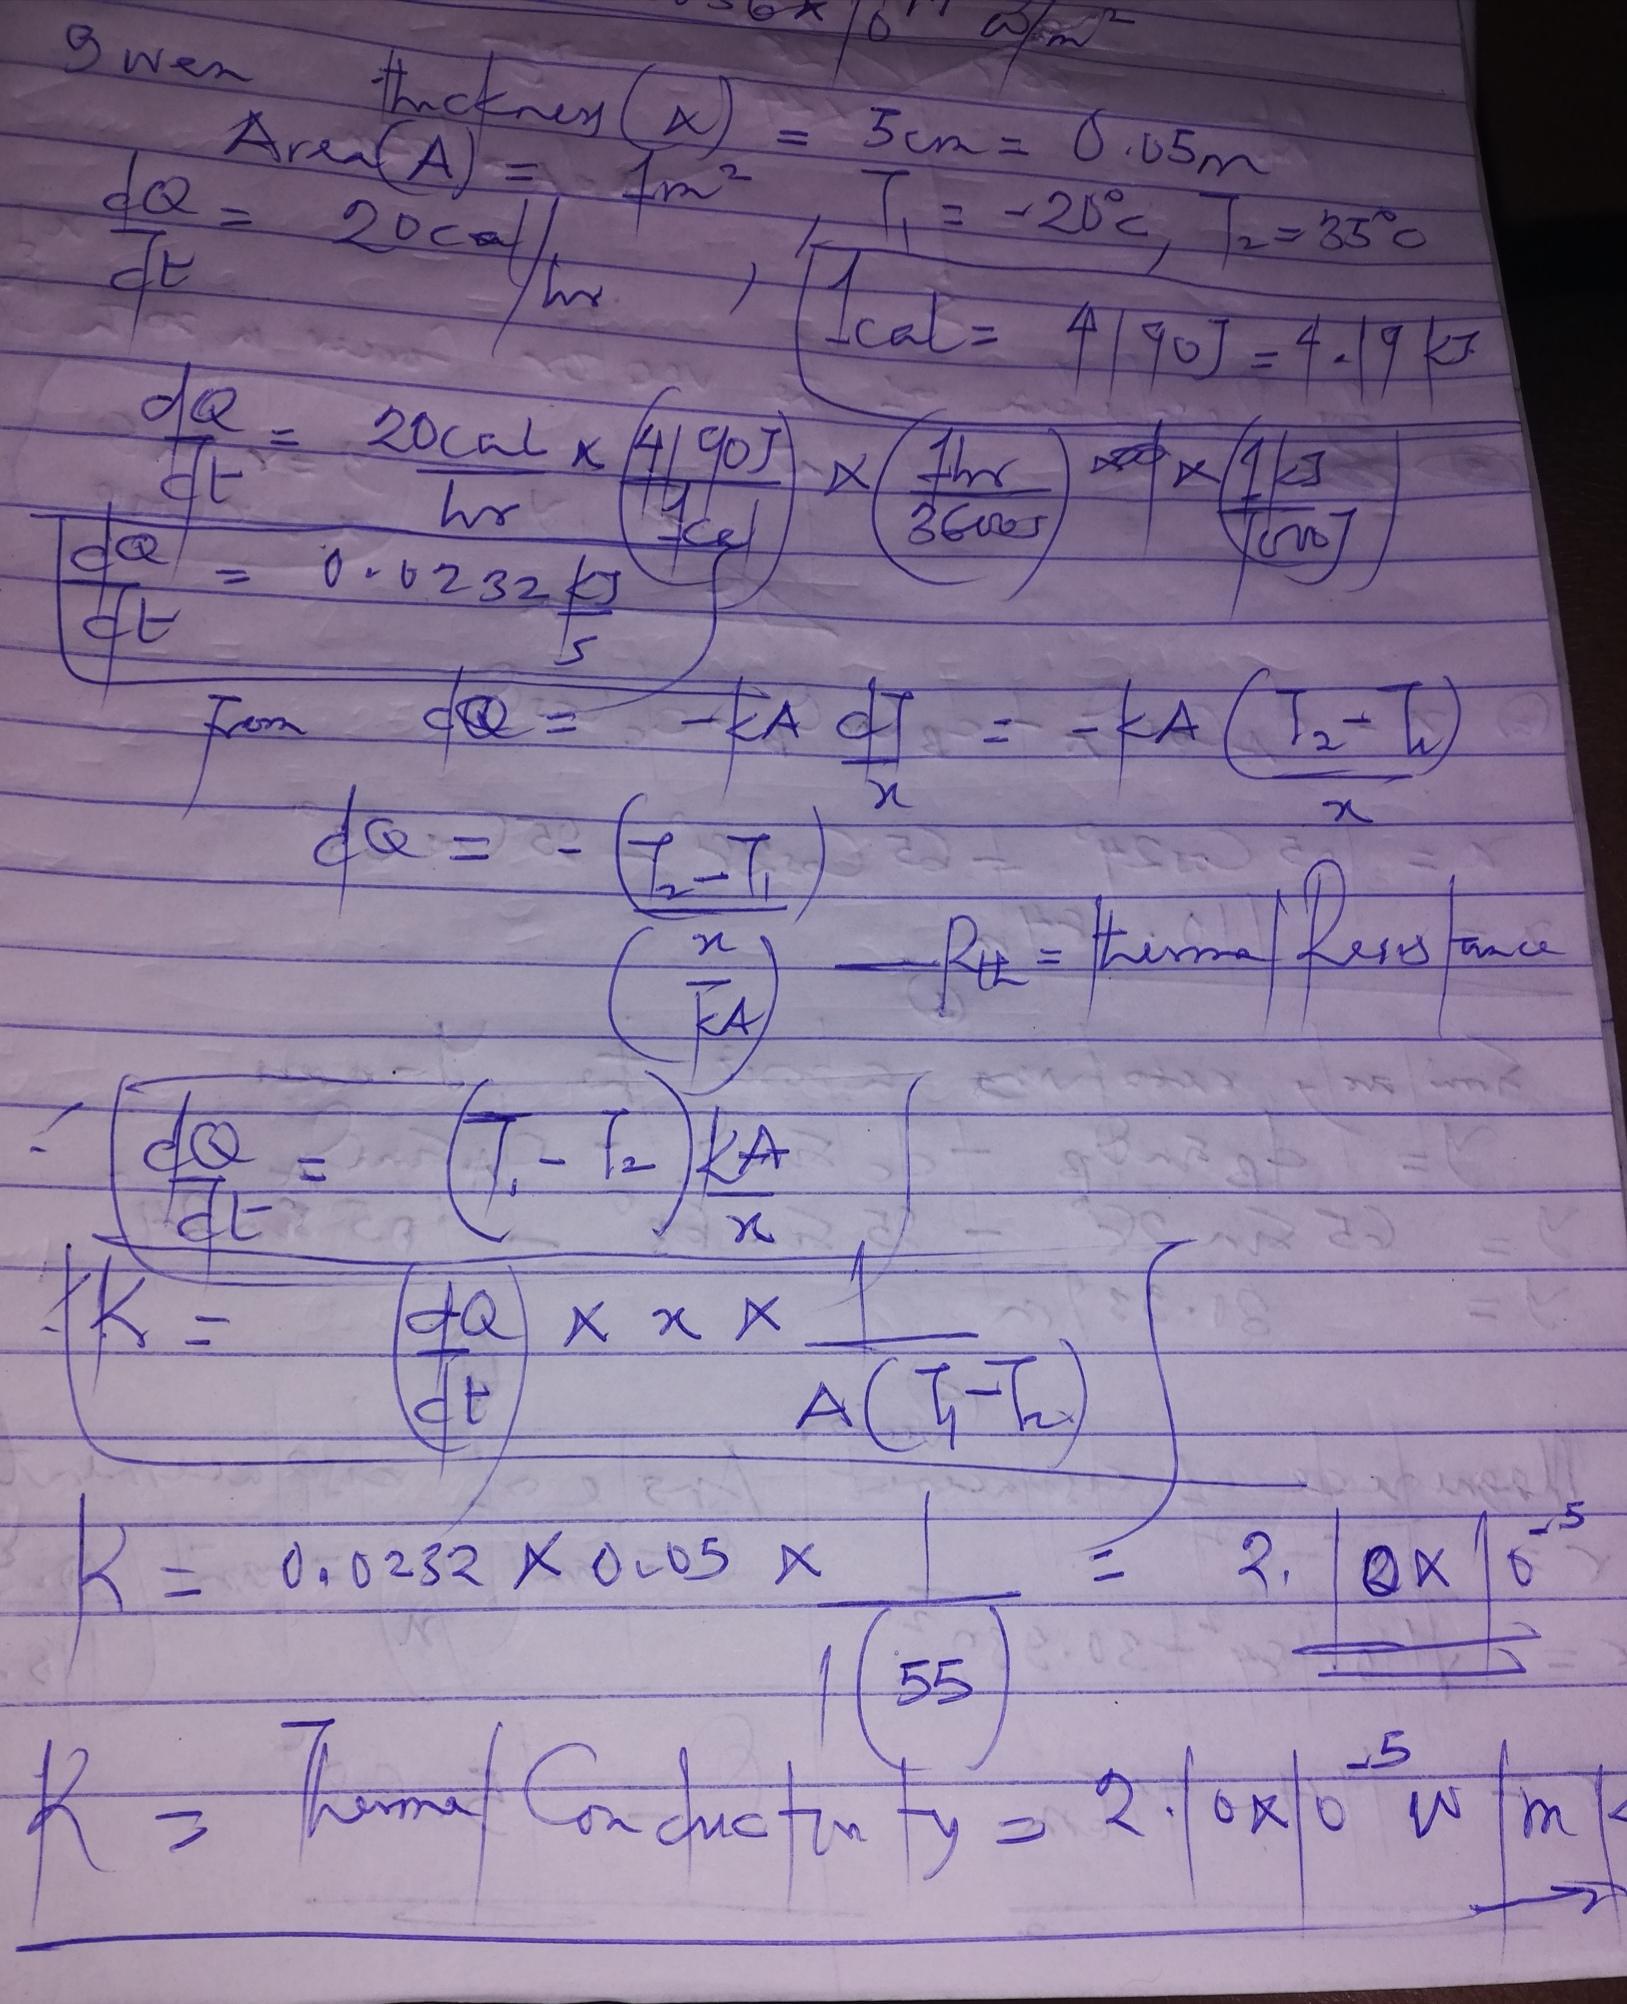 Given thickness (x) = 5cm = 0.05m
Area(A) = 1m², T₁ = -20°c, T₂ = 35°c
dQ/dt = 20cal/hr , 1cal = 4190J = 4.19kJ
dQ/dt = 20cal/hr × (4190J/1cal) × (1hr/3600s) × (1kJ/1000J)
dQ/dt = 0.0232 kJ/s
From dQ = -kA dT/x = -kA (T₂-T₁)/x
dQ = - (T₂-T₁)/(x/kA) — Rth = thermal Resistance
∴ dQ/dt = (T₁-T₂) kA/x
∴ K = (dQ/dt) × x × 1/A(T₁-T₂)
K = 0.0232 × 0.05 × 1/1(55) = 2.10×10⁻⁵
K = Thermal Conductivity = 2.10×10⁻⁵ W/mk